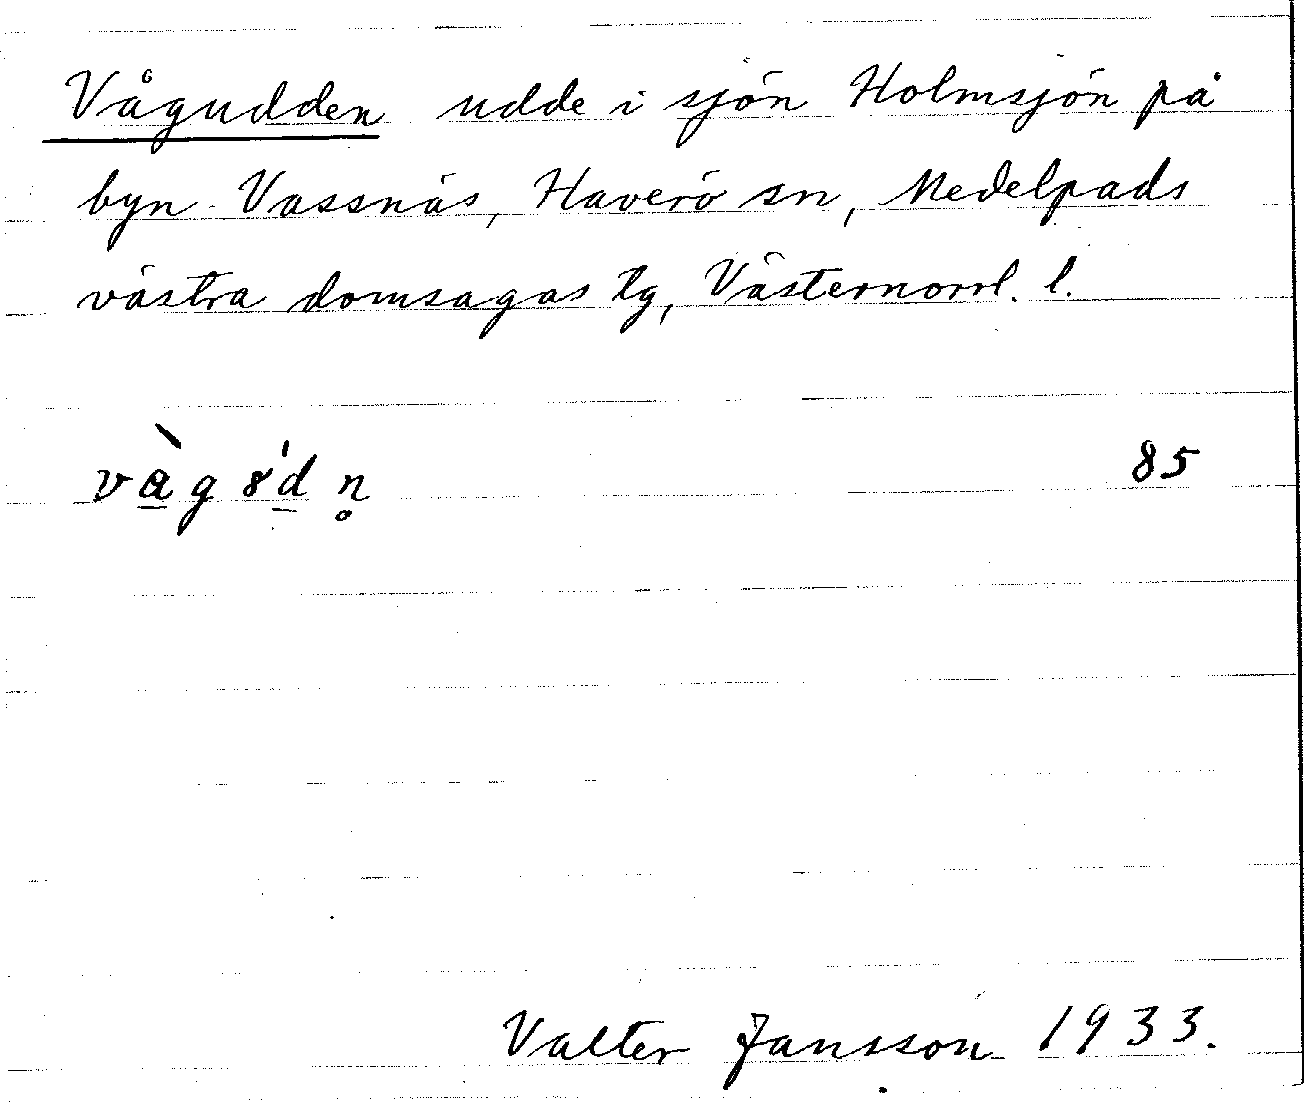 Vågudden udde i sjön Holmsjön på
byn Vassnäs, Haverö sn, Medelpads
västra domsagas tg, Västernorrl. l.
vàgȣ́dn̥ 85
Valter Jansson 1933.